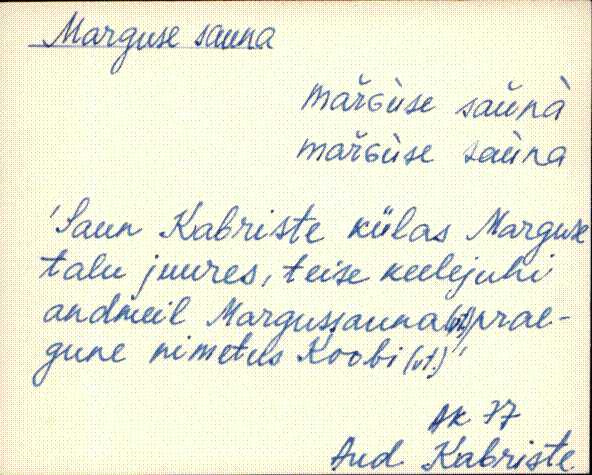 Marguse sauna
mar̆ɢùse saŭnà
mar̆ɢùse saùna
'Saun Kabriste külas Marguse
talu juures, teise keelejuhi
andmeil Margussauna (vt.) prae-
gune nimetus Koobi (vt.)'
AK 77
Aud Kabriste